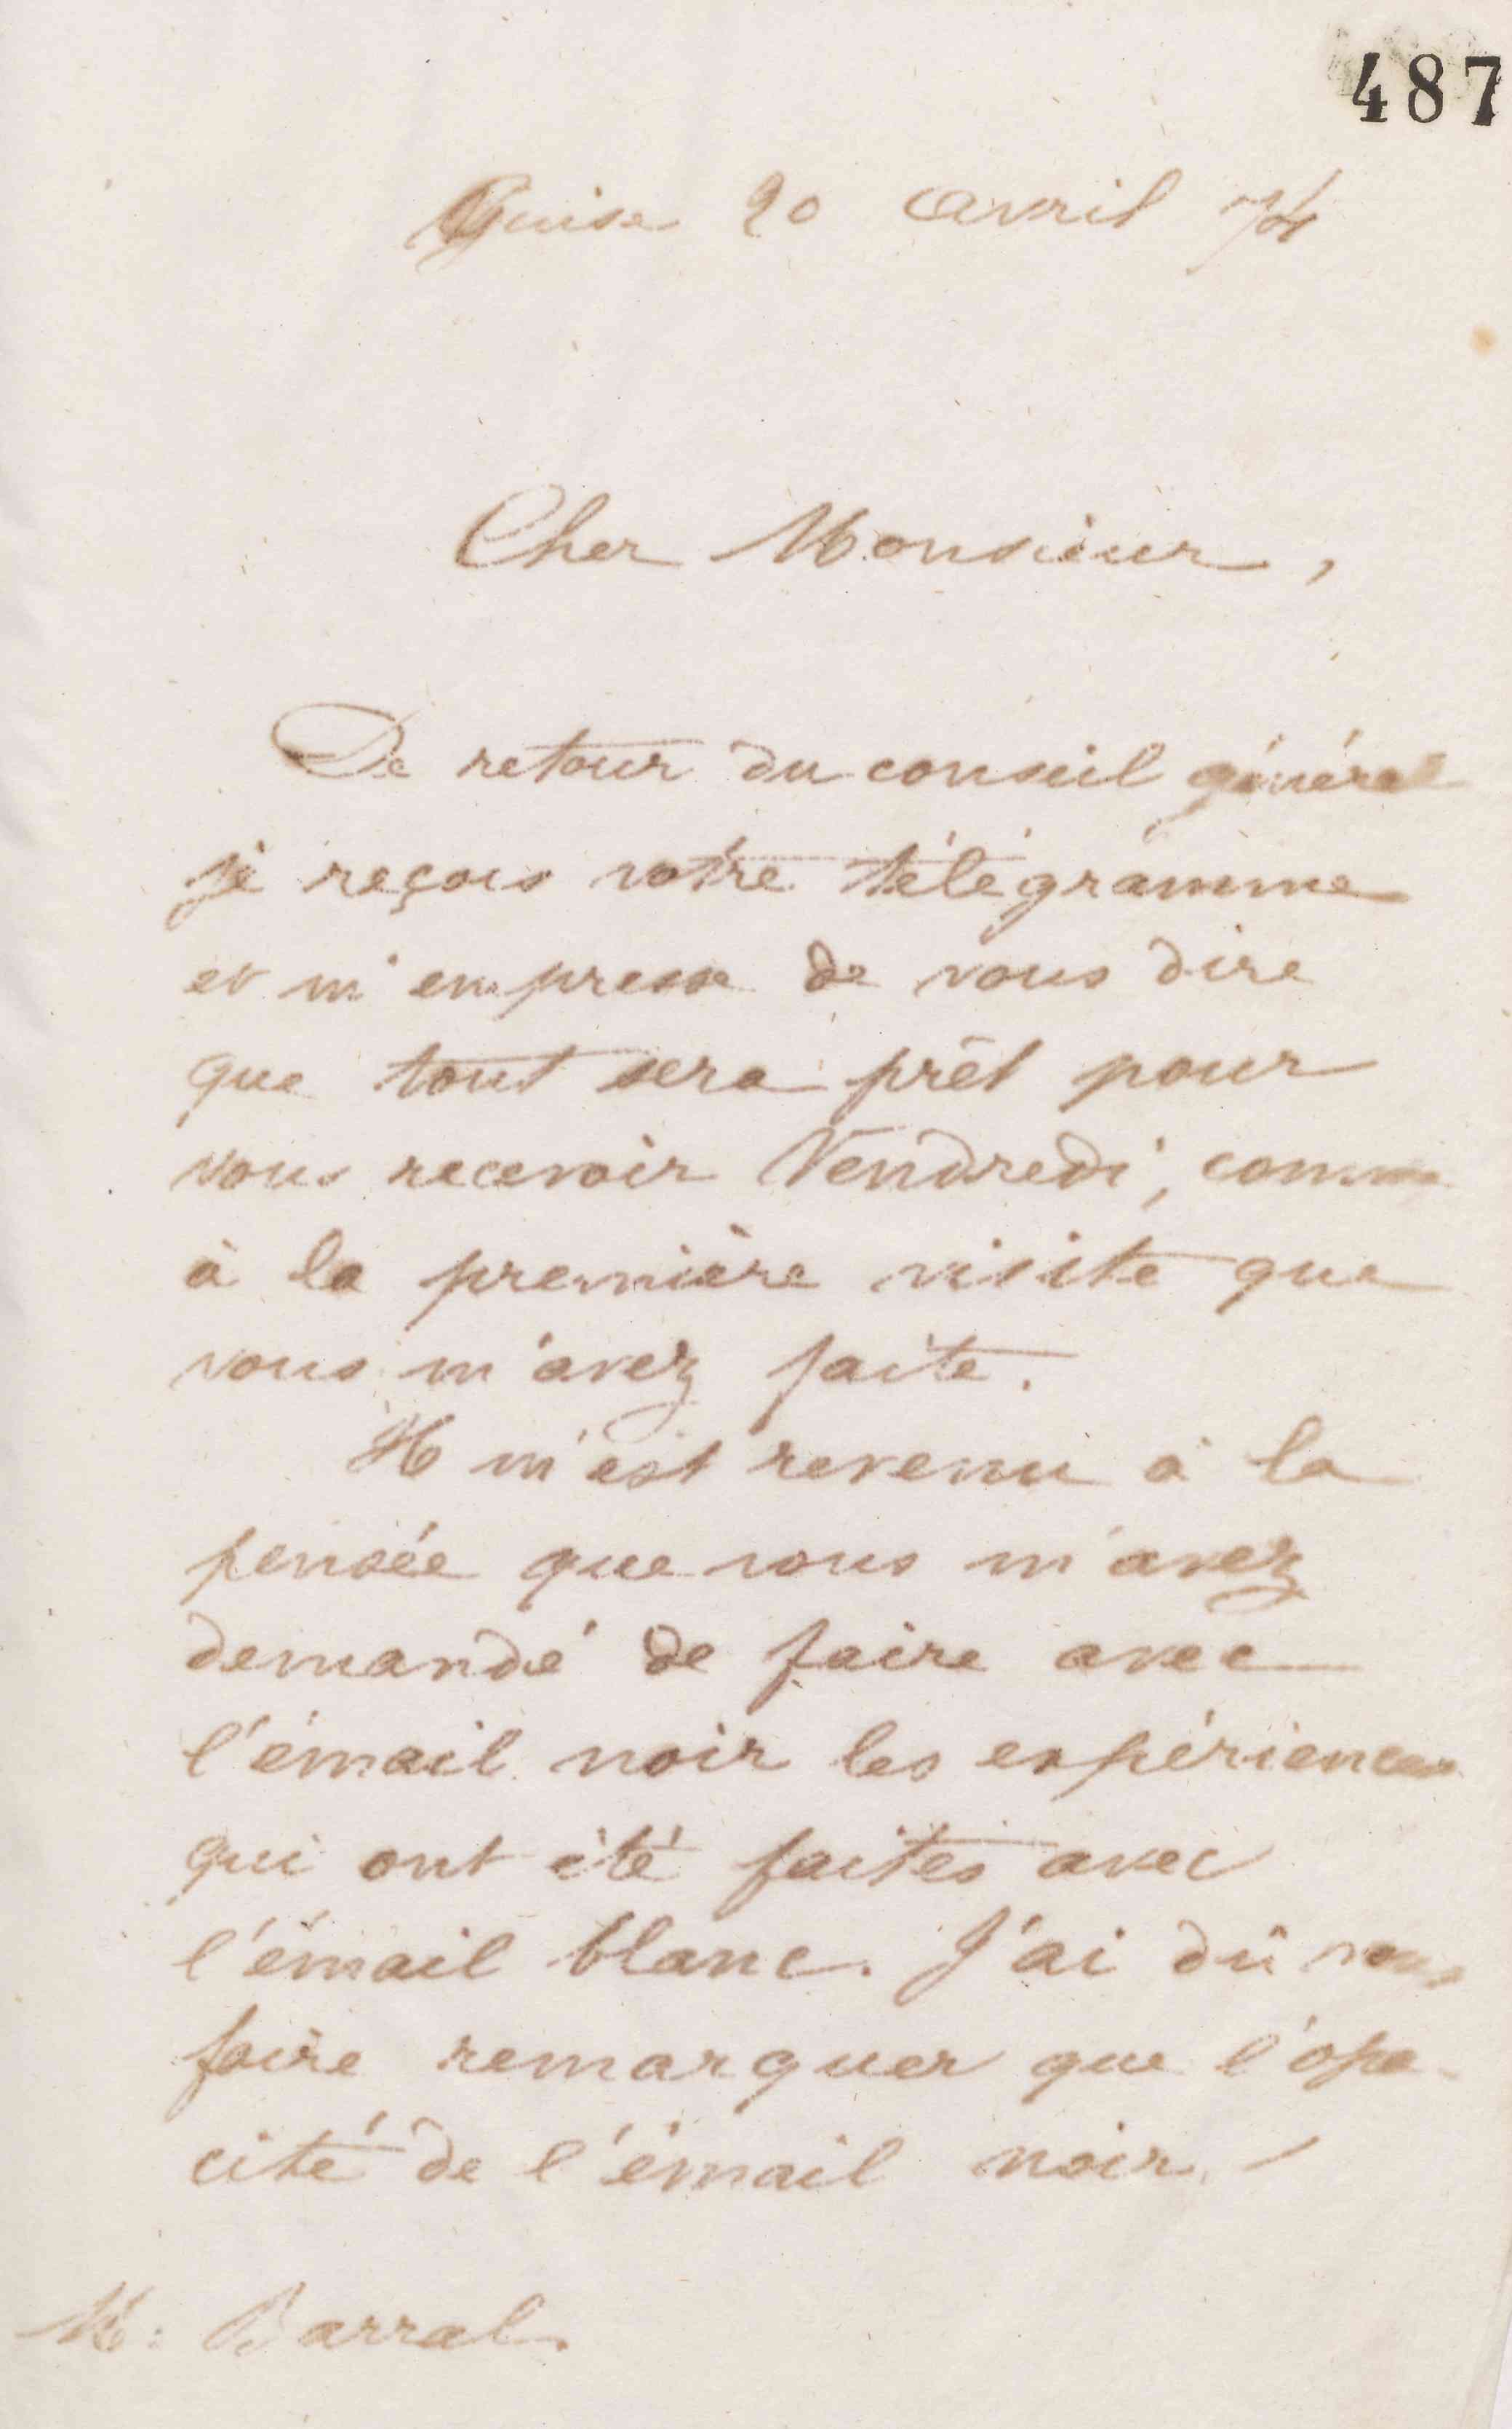 487
Guise 20 avril 74
Cher Monsieur,
De retour du conseil général
je reçois votre télégramme
et m'empresse de vous dire
que tout sera prêt pour
vous recevoir Vendredi, comme
à la première visite que
vous m'avez faite.
Il m'est revenu à la
pensée que vous m'avez
demandé de faire avec
l'émail noir les expériences
qui ont été faites avec
l'émail blanc. J'ai dû vous
faire remarquer que l'opa-
cité de l'émail noir
M. Barral